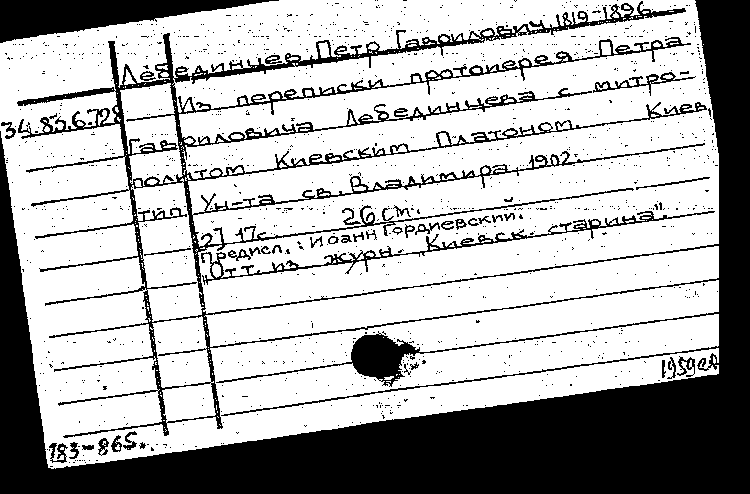 Лебединцев, Петр Гаврилович, 1819-1896.
34.83.6.728
Из переписки протоиерея Петра
Гавриловича Лебединцева с митро-
политом Киевским Платоном. Киев,
тип. Ун-та св. Владимира, 1902.
2] 17 с. 26 см.
Предисл.: Иоанн Гордиевский.
"Отт. из журн. "Киевск. старина".
1959
183-865.